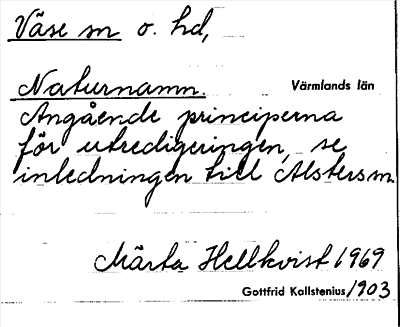 Väse sn o. hd,
Naturnamn. Värmlands län
Angående principerna
för utredigeringen, se
inledningen till Alsters sn.
Märta Hellkvist 1969
Gottfrid Kallstenius/1903